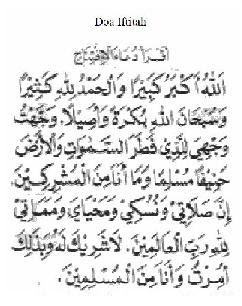 Doa Iftitah
اِقْرَأْ دُعَاءَ الْاِفْتِتَاحِ
اَللهُ اَكْبَرُ كَبِيْرًا وَالْحَمْدُ لِلّٰهِ كَثِيْرًا
وَسُبْحَانَ اللهِ بُكْرَةً وَاَصِيْلًا. وَجَّهْتُ
وَجْهِيَ لِلَّذِيْ فَطَرَ السَّمٰوَاتِ وَالْاَرْضَ
حَنِيْفًا مُسْلِمًا وَمَا اَنَا مِنَ الْمُشْرِكِيْنَ.
اِنَّ صَلَاتِيْ وَنُسُكِيْ وَمَحْيَايَ وَمَمَاتِيْ
لِلّٰهِ رَبِّ الْعَالَمِيْنَ. لَا شَرِيْكَ لَهُ وَبِذٰلِكَ
اُمِرْتُ وَاَنَا مِنَ الْمُسْلِمِيْنَ.